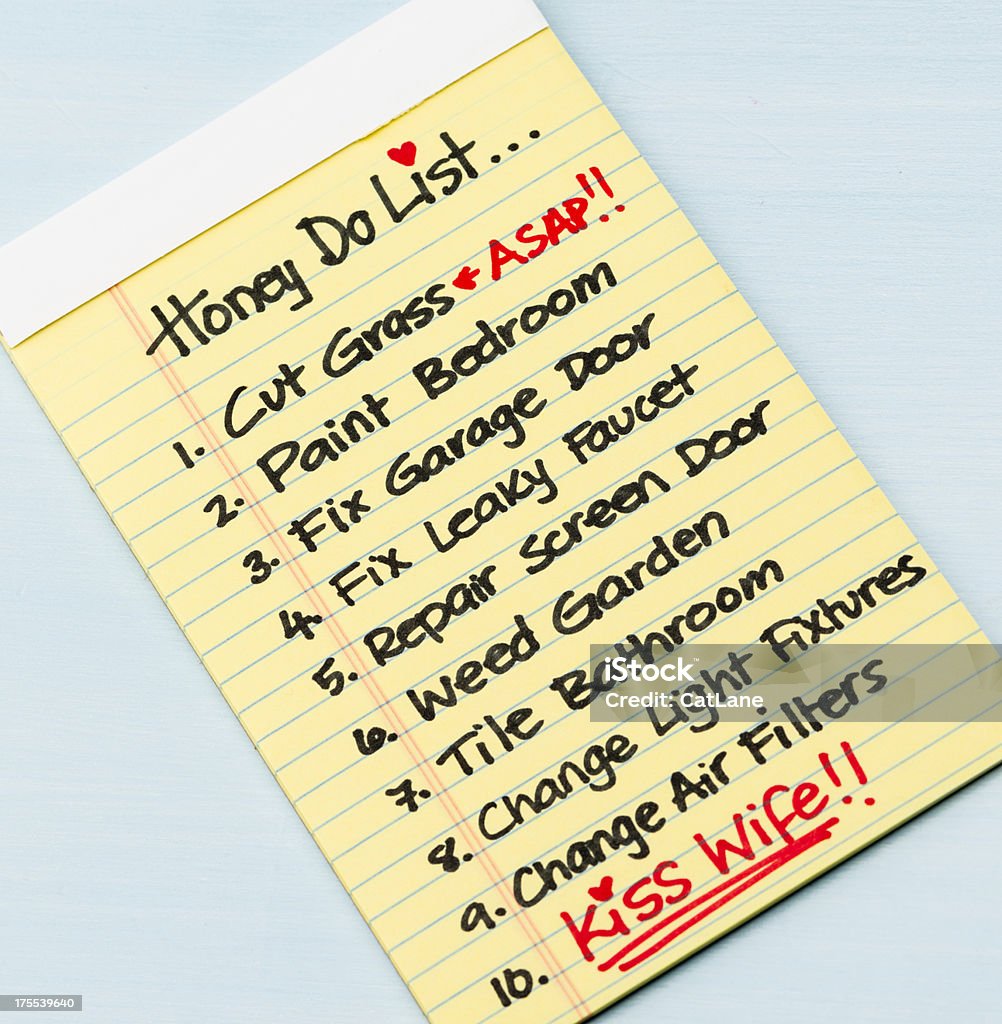 Honey Do List...
1. Cut Grass ← ASAP!!
2. Paint Bedroom
3. Fix Garage Door
4. Fix Leaky Faucet
5. Repair Screen Door
6. Weed Garden
7. Tile Bathroom
8. Change Light Fixtures
9. Change Air Filters
10. Kiss Wife!!
iStock
Credit: CatLane
175539640